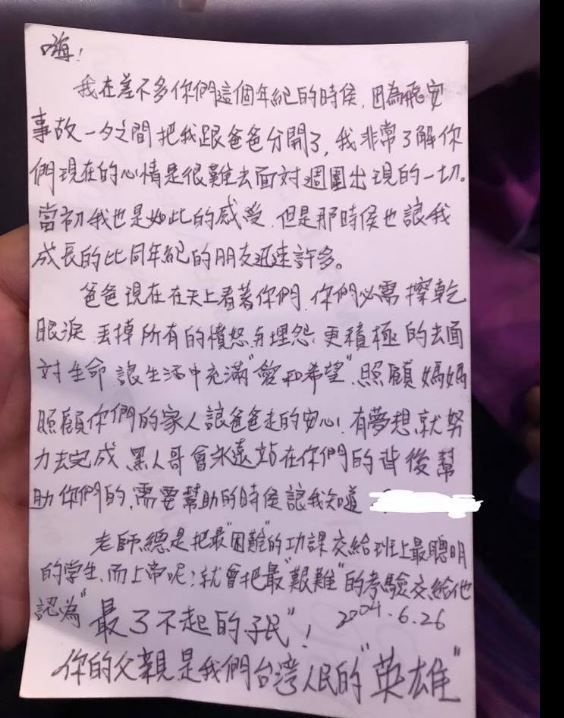 嗨!
我在差不多你們這個年紀的時候,因為飛安
事故一夕之間把我跟爸爸分開了,我非常了解你
們現在的心情是很難去面對週圍出現的一切。
當初我也是如此的感受,但是那時候也讓我
成長的比同年紀的朋友迅速許多。
爸爸現在在天上看著你們,你們必需擦乾
眼淚,丟掉所有的憤怒与埋怨,更積極的去面
對生命,讓生活中充滿"愛和希望",照顧媽媽
照顧你們的家人讓爸爸走的安心!有夢想,就努
力去完成,黑人哥會永遠站在你們的背後幫
助你們的,需要幫助的時候讓我知道
老師,總是把最"困難"的功課交給班上最聰明
的學生,而上帝呢?就會把最"艱難"的考驗交給他
認為"最了不起的子民"! 2004.6.26
你的父親是我們台灣人民的"英雄"